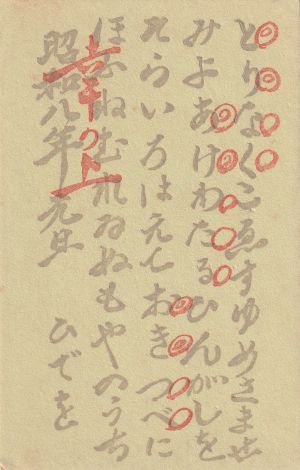 とりなくこゑすゆめさませ
みよあけわたるひんがしを
そらいろはえておきつべに
ほふねむれゐぬもやのうち
昭和八年 元旦 ひでを
の上